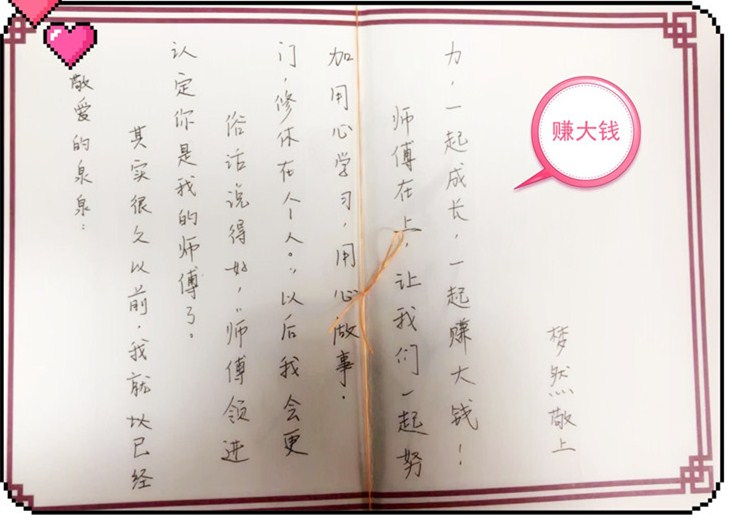 敬爱的泉泉：
其实很久以前，我就以已经
认定你是我的师傅了。
俗话说得好，“师傅领进
门，修休在个人。”以后我会更
加用心学习，用心做事.
师傅在上，让我们一起努
力，一起成长，一起赚大钱！
梦然敬上
赚大钱